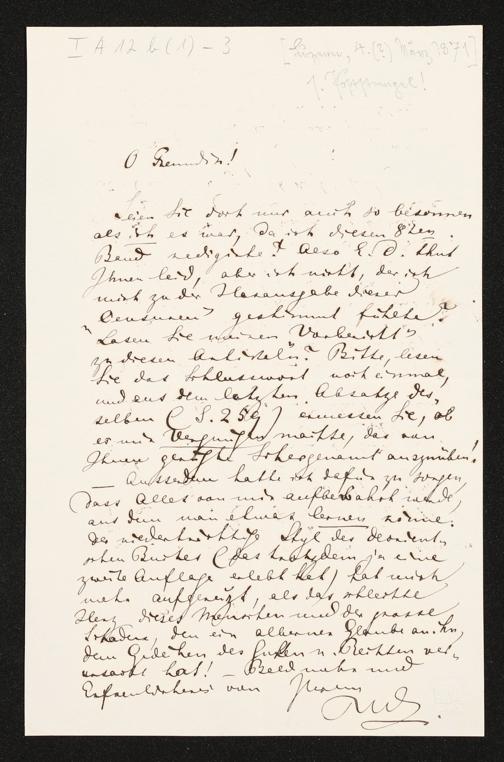 I A 12 b (1) – 3
[Luzern, 4. (?) März 1871]
O Freundin!
Seien Sie doch nur auch so besonnen
als ich es war, da ich diesen 8ten
Band redigirte! Also E. D. thut
Ihnen leid, aber ich nicht, der ich
mich zu der Herausgabe dieser
Censuren" gestimmt fühlte?
"Lasen Sie meinen Vorbericht"
zu diesen Artikeln? Bitte, lesen
Sie das Schlusswort noch einmal,
und aus dem letzten Absatze des-
selben (S. 259) ermessen Sie, ob
es mir Vergnügen machte, das von
Ihnen gerügte Schergenamt auszuüben!
— Ausserdem hatte ich dafür zu sorgen,
dass Alles von mir aufbewahrt werde,
aus dem man etwas lernen könne.
Der niederträchtige Styl des Devrient-
schen Buches (das trotzdem ja eine
zweite Auflage erlebt hat) hat mich
mehr aufgereizt, als das schlechte
Herz dieses Menschen und der grosse
Schaden, den ein alberner Glaube an ihn,
dem Gedeihen des Guten u. Rechten ver-
ursacht hat! — Bald mehr und
Erfreulicheres von Ihrem